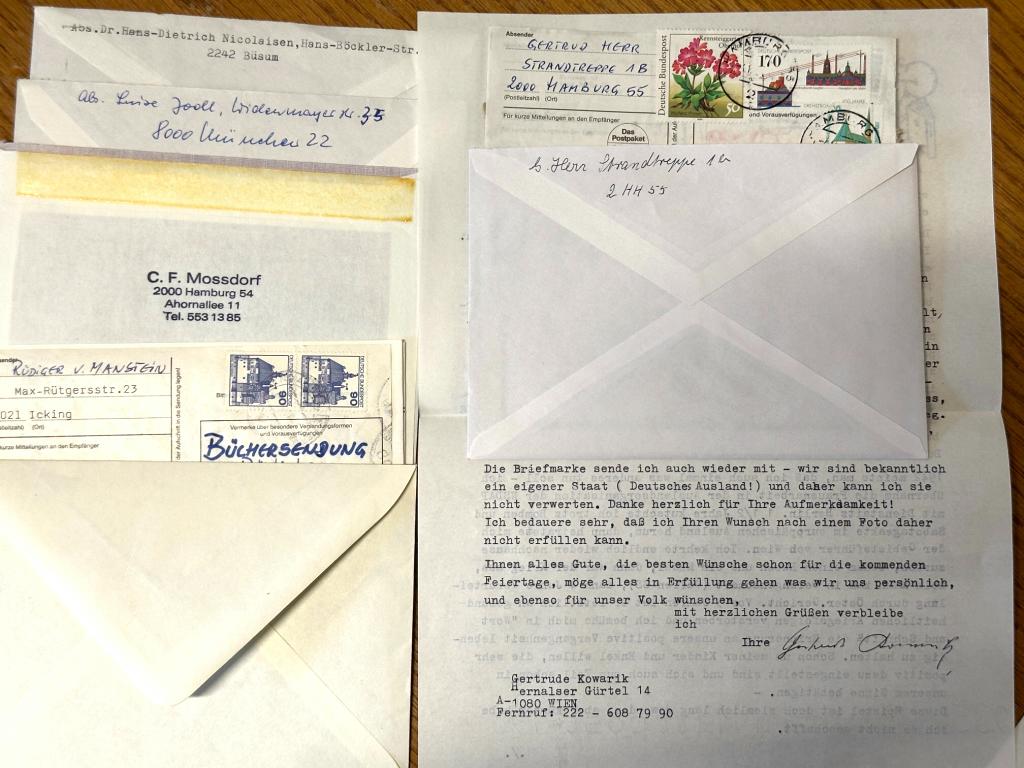 Abs.Dr.Hans-Dietrich Nicolaisen,Hans-Böckler-Str.
2242 Büsum
Abs. Luise Jodl, Widenmayerstr. 35
8000 München 22
C. F. Mossdorf
2000 Hamburg 54
Ahornallee 11
Tel. 553 13 85
RÜDIGER V. MANSTEIN
Max-Rütgersstr.23
021 Icking
(Ort)
kurze Mitteilungen an den Empfänger
Vermerke über besondere Versendungsformen
und Vorausverfügungen
BÜCHERSENDUNG
90
90
Absender
GERTRUD HERR
STRANDTREPPE 1B
2000 HAMBURG 55
(Postleitzahl) (Ort)
Für kurze Mitteilungen an den Empfänger
Das
Postpaket
Deutsche Bundespost
50
170
und Vorausverfügungen
G. Herr Strandtreppe 1b
2 HH 55
Die Briefmarke sende ich auch wieder mit – wir sind bekanntlich
ein eigener Staat ( Deutsches Ausland!) und daher kann ich sie
nicht verwerten. Danke herzlich für Ihre Aufmerksamkeit!
Ich bedauere sehr, daß ich Ihren Wunsch nach einem Foto daher
nicht erfüllen kann.
Ihnen alles Gute, die besten Wünsche schon für die kommenden
Feiertage, möge alles in Erfüllung gehen was wir uns persönlich,
und ebenso für unser Volk wünschen,
mit herzlichen Grüßen verbleibe
ich
Ihre
Gertrude Kowarik
Hernalser Gürtel 14
A-1080 WIEN
Fernruf: 222 - 608 79 90